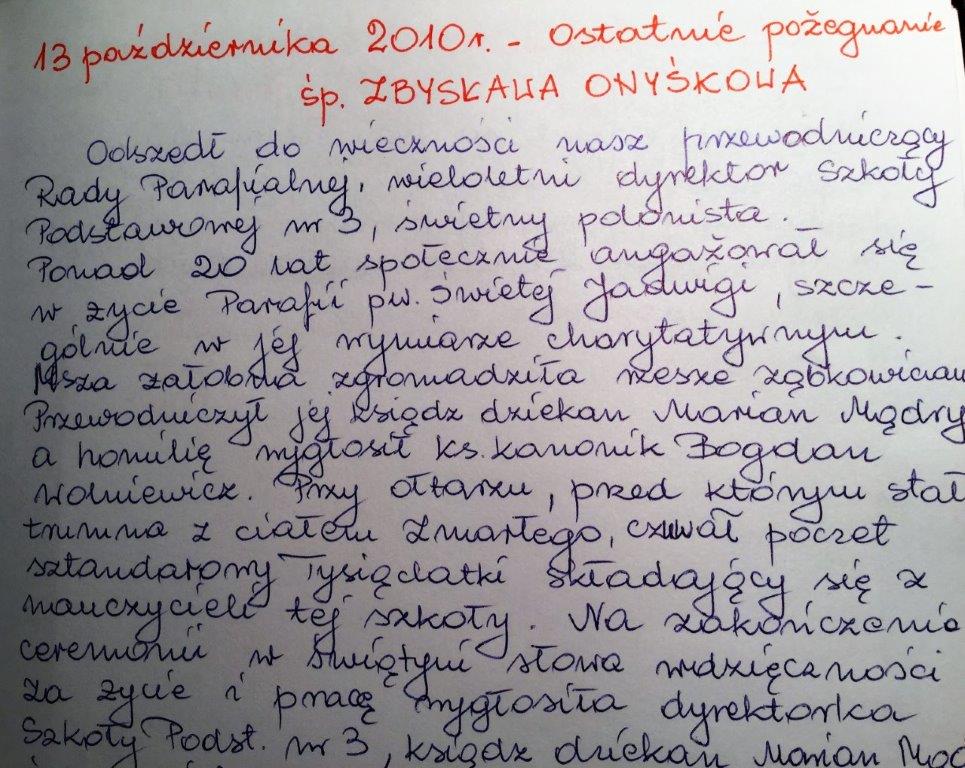 13 października 2010r. - Ostatnie pożegnanie
śp. ZBYSŁAWA ONYŚKOWA
Odszedł do wieczności nasz przewodniczący
Rady Parafialnej, wieloletni dyrektor Szkoły
Podstawowej nr 3, świetny polonista.
Ponad 20 lat społecznie angażował się
w życie Parafii pw. Świętej Jadwigi, szcze-
gólnie w jej wymiarze charytatywnym.
Msza żałobna zgromadziła rzesze ząbkowiczan
Przewodniczył jej ksiądz dziekan Marian Mądry
a homilię wygłosił ks. kanonik Bogdan
Wolniewicz. Przy ołtarzu, przed którym stał
trumna z ciałem Zmarłego, czuwał poczet
sztandarowy Tysiąclatki składający się z
nauczycieli tej szkoły. Na zakończenie
ceremonii w świątyni słowa wdzięczności
za życie i pracę wygłosiła dyrektorka
Szkoły Podst. nr 3, ksiądz dziekan Marian Mąd